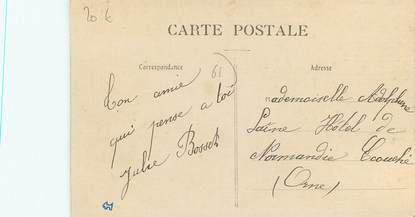 20 €
CARTE POSTALE
Correspondance
Adresse
61
Ton amie
qui pense a toi
Julie Bosset
Mademoiselle Adolphine
Laîne Hôtel de
Normandie Ecouché
(Orne)